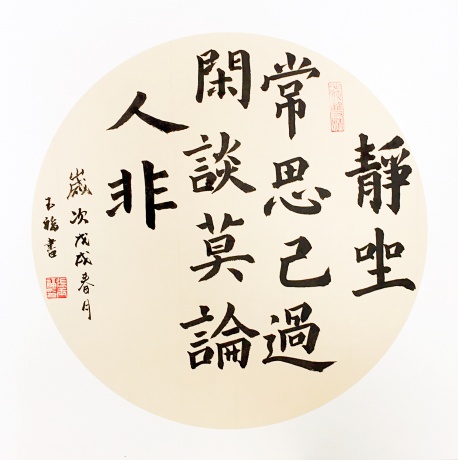 靜坐
常思己過
閑談莫論
人非
歲次戊戌春月
書